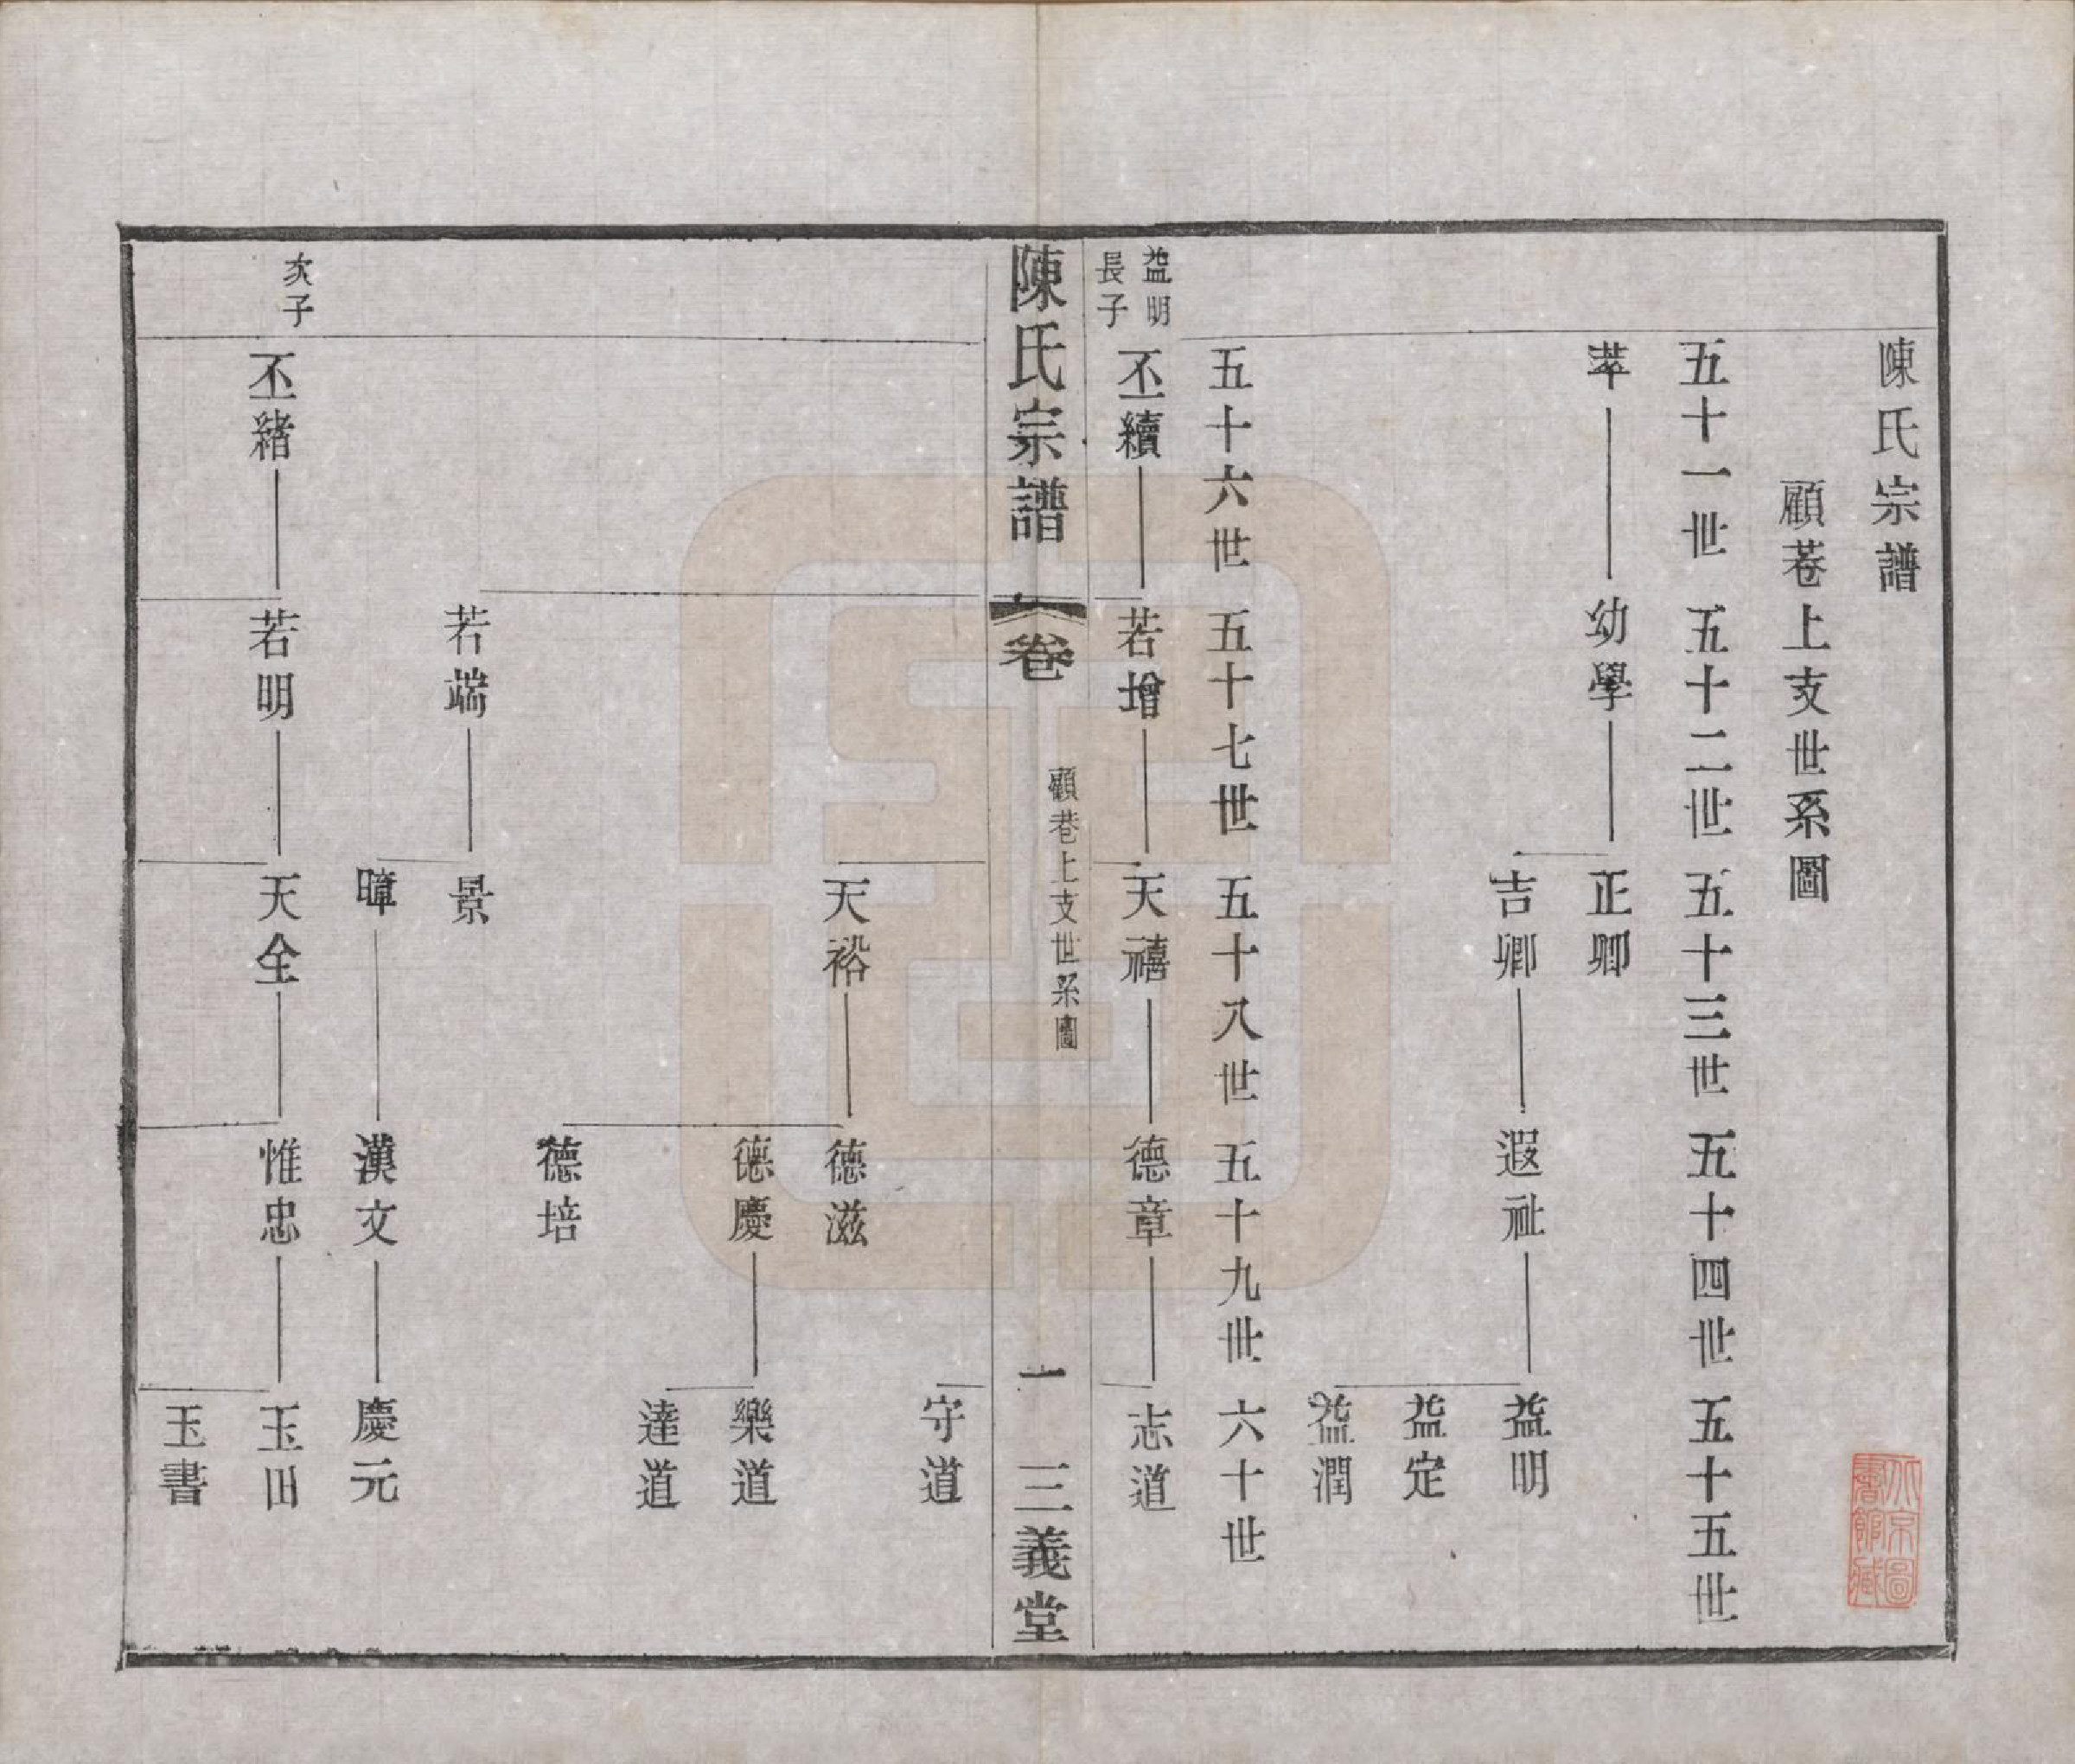 陳氏宗譜
顧巷上支世系圖
五十一世 五十二世 五十三世 五十四世 五十五世
萃 幼學 正卿
吉卿 遐祉 益明
益定
益潤
五十六世 五十七世 五十八世 五十九世 六十世
益明
長子
丕纘 若增 天禧 德章 志道
陳氏宗譜 卷 顧巷上支世系圖 一 三義堂
守道
天裕 德滋
德慶 樂道
達道
德培
若端 景
暲 漢文 慶元
次子
丕緒 若明 天全 惟忠 玉田
玉書
北京圖
書館藏